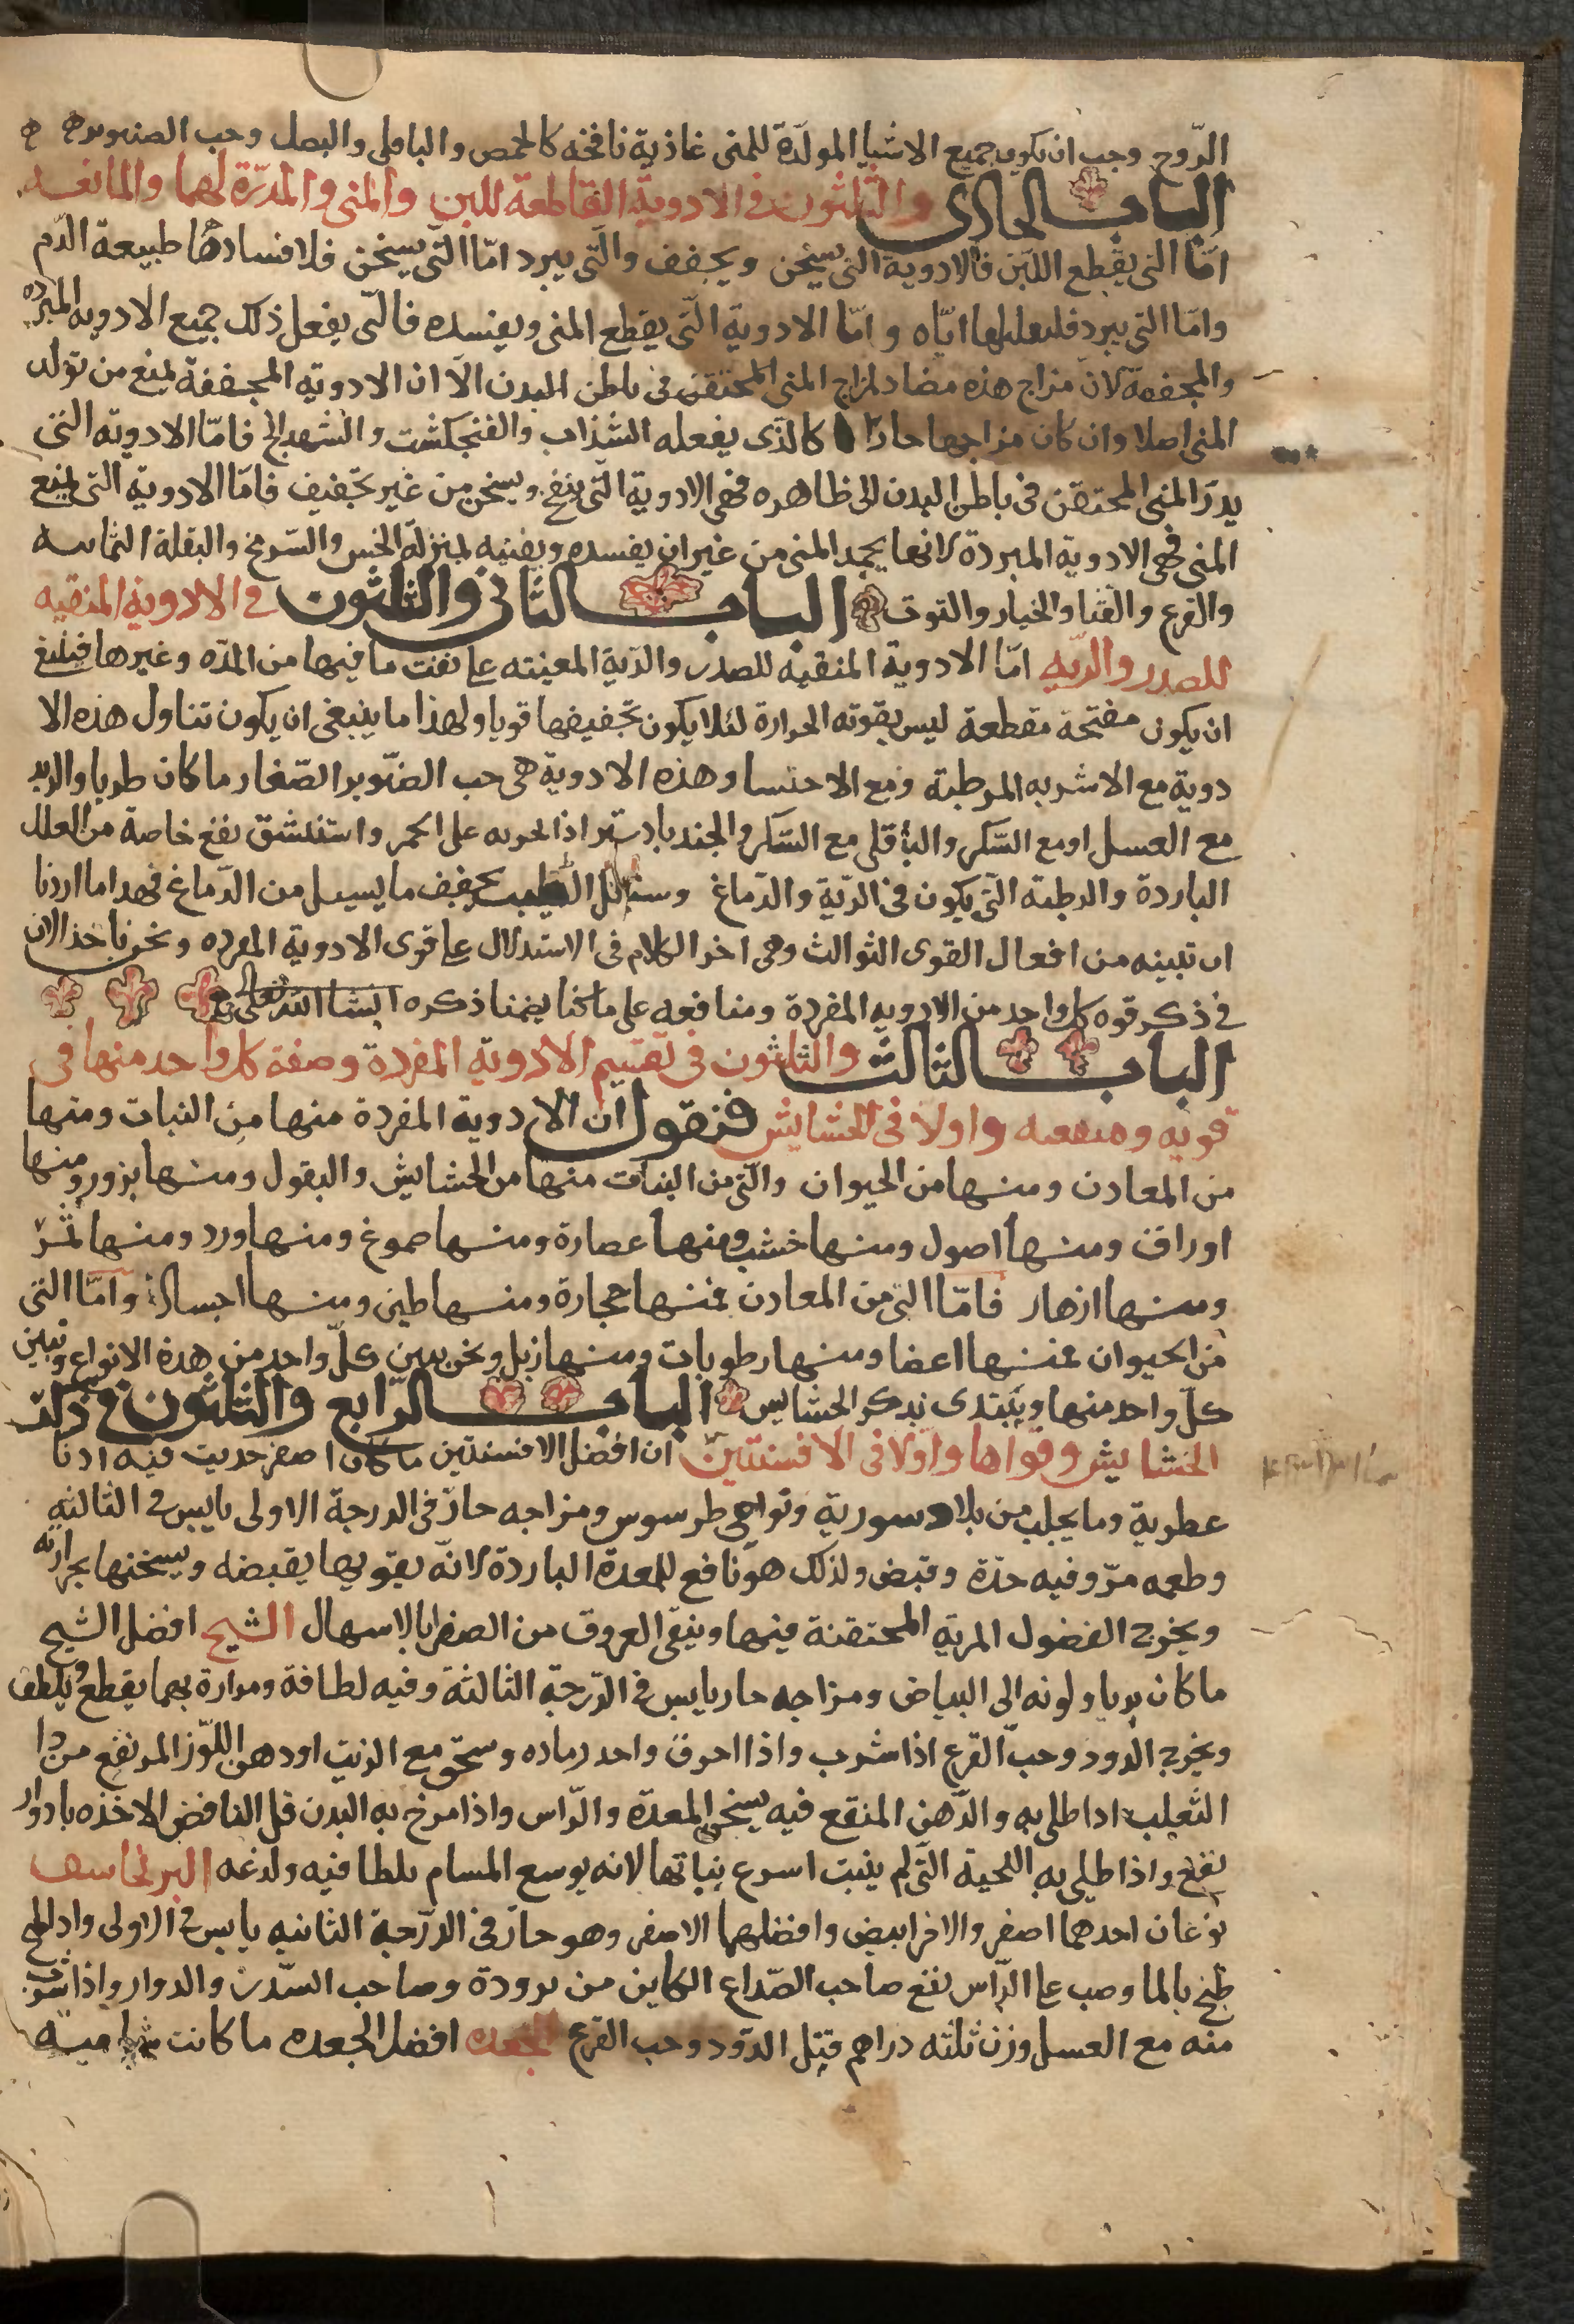 الرّوح وجب ان يكون جميع الاشيا المولّدة للمنى غاذية نافخه كالحمص والباقلى والبصل وحب الصنوبر
الباب الحادى والثلثون فى الادوية القاطعة للبن والمنى والمدرّة لهما والمانعه
امّا التى يقطع اللبن فالادوية التى يسخن ويجفف والتى يبرد امّا التى يسخن فلافسادها طبيعة الدّم
وامّا التى يبرد ايّاه وامّا الادوية الّتى يقطع المنى ويفسده فالتى يفعل ذلك جميع الادويه المبرده
والمجففة لان مزاج هذه مضاد لمزاج المنى المحتقن فى باطن البدن الّا ان الادوية المجففة يمنع من تولد
المنى اصلا وان كان مزاجها حارا كالذى يفعله الشذاب والفنجكشت والشهدانج فامّا الادوية التى
يدرّ المنى المحتقن فى باطن البدن الى ظاهره فهى الادوية التى ينفخ ويسخن من غير تجفيف فامّا الادوية التى يمنع
المنى فهى الادوية المبردة لانها يجمد المنى من غير ان يفسده ويفنيه بمنزلة الخس والسرمخ والبقلة اليمانيه
والقرع والقثا والخيار والتوت الباب الثانى والثلثون فى الادوية المنقيه
للصدر والريه امّا الادوية المنقيه للصدر والريه المعينه على نفث ما فيها من المدّه وغيرها فينبغ
ان يكون مفتحة مقطعة ليس بقوته الحرارة لئلا يكون تجفيفها قويا ولهذا ما ينبغى ان يكون تناول هذه الا
دوية مع الاشربه المرطبة ومع الاحتسا وهذه الادوية هى حب الصنوبر الصغار ما كان طريا والزبد
مع العسل او مع السكر والباقلى مع السكر والجندبادستر اذا على الجمر واستنشق نفع خاصة من العلل
الباردة والرطبه التى يكون فى الرية والدماغ وسنبل الطيب يجفف ما يسيل من الدماغ فهدا ما اردنا
ان تبينه من افعال القوى الثوالث وهى اخر الكلام فى الاستدلال على قوى الادوية المفرده ونحن ناخذ الان
فى ذكر قوه كل واحد من الادويه المفردة ومنافعه على ما كنا يضمنا ذكره انشا الله تعالى
الباب الثالث والثلثون فى تقسيم الادوية المفردة وصفة كل واحد منها فى
قوته ومنفعه واولا فى الحشايش فنقول ان الادوية المفردة منها من النبات ومنها
من المعادن ومنها من الحيوان والتى من النبات منها من الحشايش والبقول ومنها بزور ومنها
اوراق ومنها اصول ومنها خشب ومنها عصارة ومنها صموغ ومنها ورد ومنها ثمر
ومنها ازهار فامّا التى من المعادن فمنها حجارة ومنها طين ومنها اجساد وامّا التى
من الحيوان فمنها اعضا ومنها رطوبات ومنها زبل ونحن نبين كلّ واحد من هذه الانواع ونبين
كلّ واحد منها ويبتدى بذكر الحشايش الباب الرابع والثلثون فى ذكر
الحشايش وقواها واوّلا فى الافسنتين ان افضل الافسنتين ما كان اصفر حديث فيه ادنا
عطرية وما يجلب من بلاد سورية ونواحى طرسوس ومزاجه حارّ فى الدرجة الاولى يابس فى الثالثه
وطعمه مرّ وفيه حدّة وقبض ولذلك هو نافع للمعدة الباردة لانّه يقويها بقبضه ويسخنها بحرارته
ويخرج الفضول المرية المحتقنة فيها وينقى العروق من الصفرا بالاسهال الشيح افضل الشيح
ما كان بريا ولونه الى البياض ومزاجه حار يابس فى الدرجة الثالثة وفيه لطافة ومرارة بهما يقطع ويلطف
ويخرج الدود وحبّ القرع اذا شرب واذا احرق واحد رماده وسحق مع الزيت او دهن اللّوز المر نفع من دا
الثعلب اذا طلى به والدّهن المنقع فيه يسخن المعدة والرّاس واذا مرخ به البدن قبل النافض الاخذه بادوار
نفع واذا طلى به اللحية التى لم ينبت اسرع بنباتها لانه يوسع المسام بلطافيه ولدغه البرنجاسف
نوعان احدهما اصفر والاخر ابيض وافضلهما الاصفر وهو حارّ فى الدرجة الثانيه يابس فى الاولى واذا
طبخ بالما وصب على الرّاس نفع صاحب الصّداع الكاين من برودة وصاحب السّدر والدوار واذا شرب
منه مع العسل وزن ثلثه دراهم قتل الدود وحب القرع الجعده افضل الجعده ما كانت شاميه